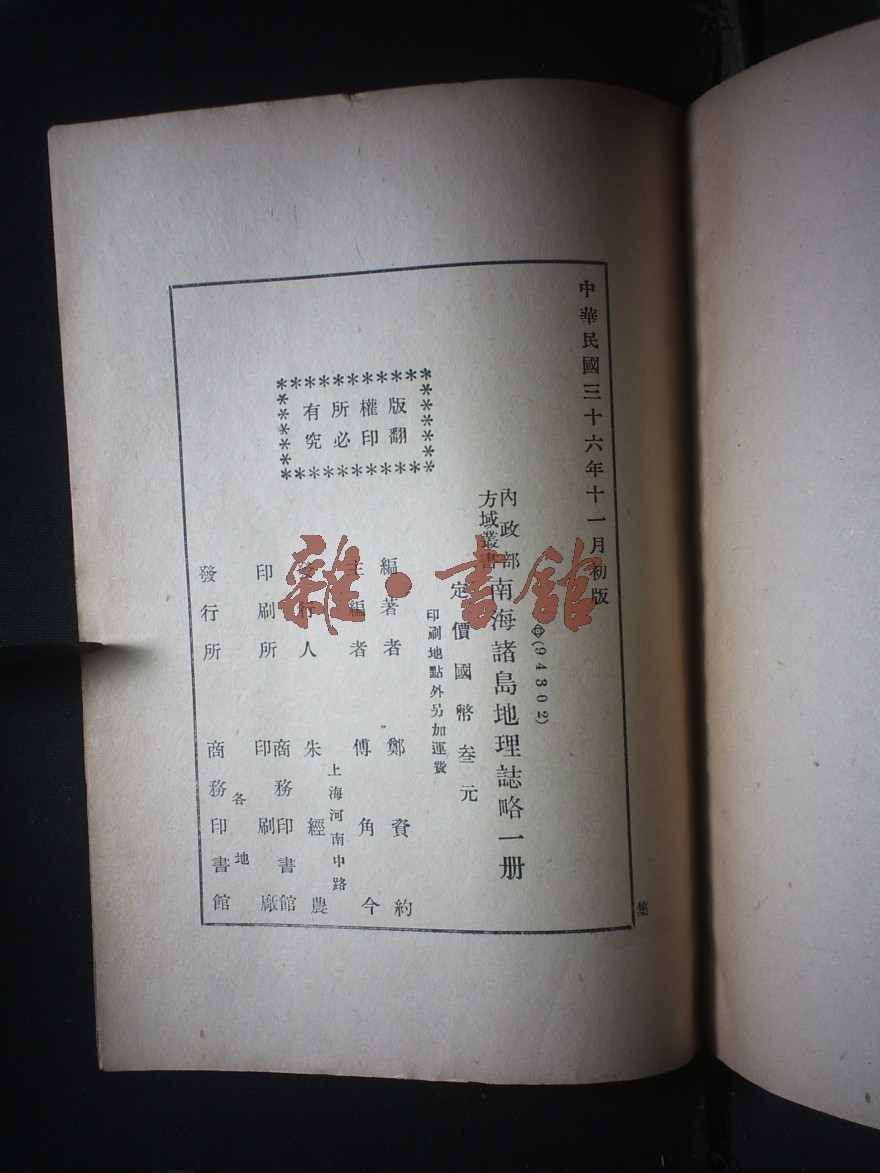 中華民國三十六年十一月初版
(94302)
內政部
方域叢書
南海諸島地理誌略一册
定價國幣叁元
印刷地點外另加運費
版權所有
翻印必究
編著者 鄭資約
主編者 傅角今
上海河南中路
發行人 朱經農
印刷所 商務印書館
印刷廠
各地
發行所 商務印書館
集
雜·書館